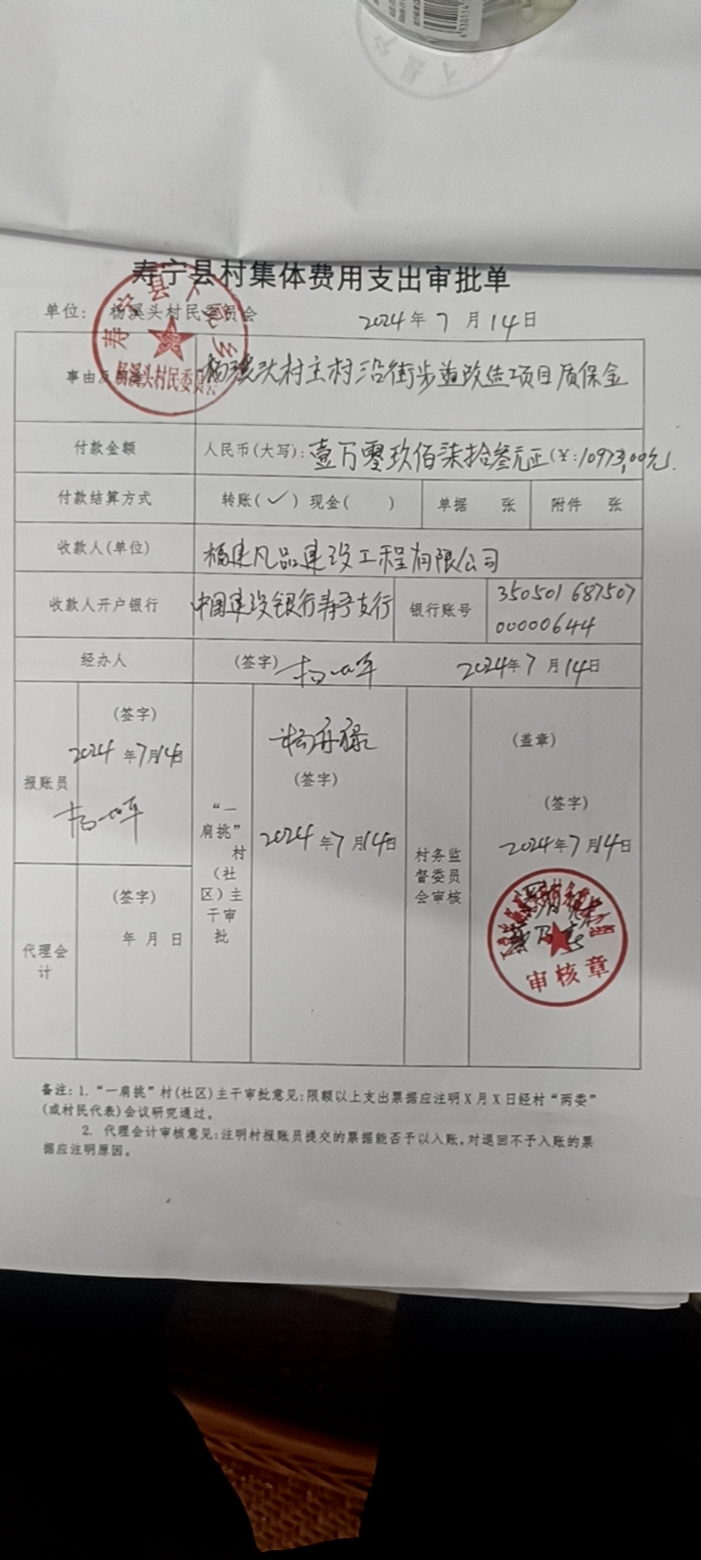 寿宁县村集体费用支出审批单
单位： 杨溪头村民委员会 2024年7月14日
事由及 杨溪头村主村沿街步道改造项目质保金
杨溪头村民委员会
付款金额 人民币(大写)：壹万零玖佰柒拾叁元正(¥:10973.00元)
付款结算方式 转账(✓) 现金( ) 单据 张 附件 张
收款人(单位) 福建凡品建设工程有限公司
收款人开户银行 中国建设银行寿宁支行 银行账号 350501687507
00000644
经办人 (签字) 2024年7月14日
报账员 (签字)
2024年7月14日
“一肩挑”村(社区)主干审批
(签字)
2024年7月14日
村务监督委员会审核
(盖章)
(签字)
2024年7月14日
审核章
代理会计 (签字)
年 月 日
备注：1. “一肩挑”村(社区)主干审批意见：限额以上支出票据应注明X月X日经村“两委”
(或村民代表)会议研究通过。
2. 代理会计审核意见：注明村报账员提交的票据能否予以入账，对退回不予入账的票
据应注明原因。